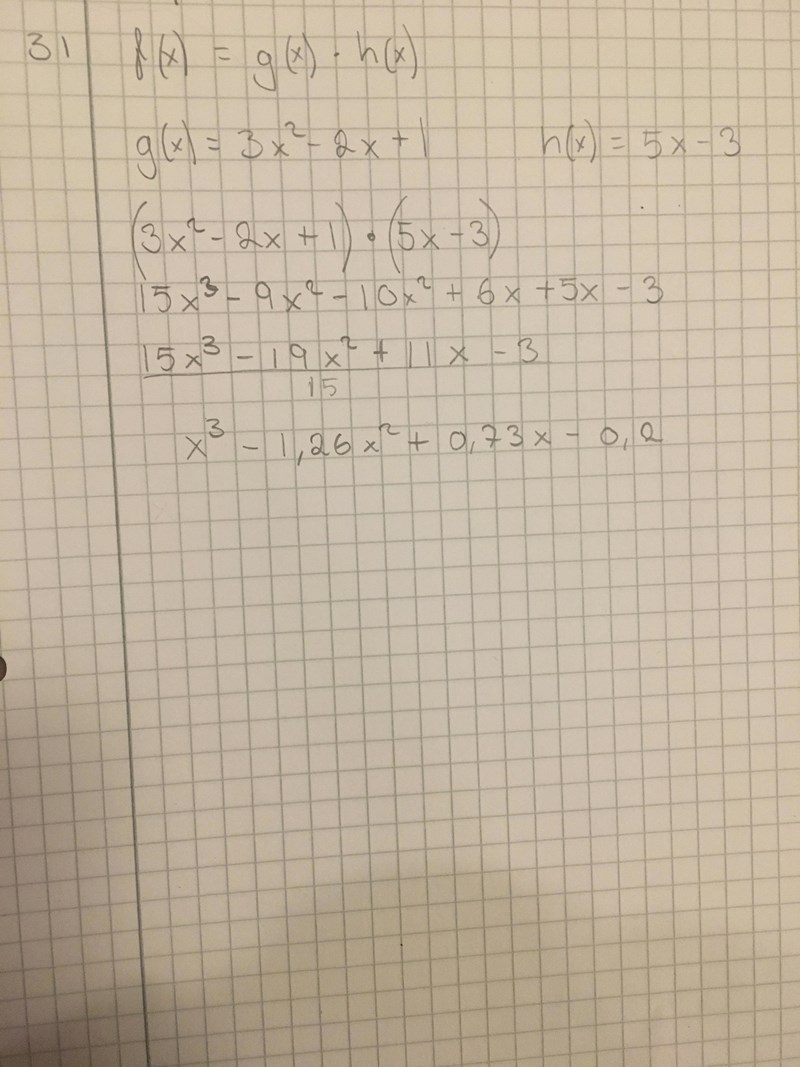 31 f(x) = g(x) · h(x)
g(x) = 3x² - 2x + 1 h(x) = 5x - 3
(3x² - 2x + 1) · (5x - 3)
15x³ - 9x² - 10x² + 6x + 5x - 3
15x³ - 19x² + 11x - 3
15
x³ - 1,26x² + 0,73x - 0,2